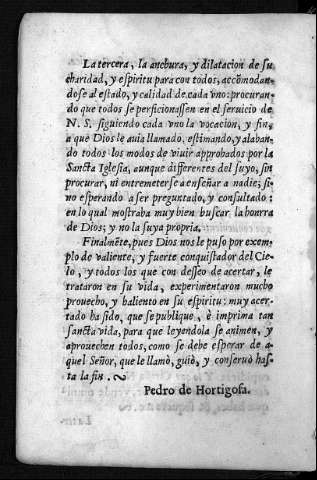 La tercera, la anchura, y dilatacion de su
charidad, y espiritu para con todos, accõmodan-
dose al estado, y calidad de cada vno: procuran-
do que todos se perficionassen en el seruicio de
N. S. siguiendo cada vno la vocacion, y fin,
a que Dios le auia llamado, estimando, y alaban-
do todos los modos de viuir approbados por la
Sancta Iglesia, aunque differentes del suyo, sin
procurar, ni entremeterse a enseñar a nadie; si-
no esperando a ser preguntado, y consultado:
en lo qual mostraba muy bien buscar la honrra
de Dios; y no la suya propria.
Finalmẽte, pues Dios nos le puso por exem-
plo de valiente, y fuerte conquistador del Cie-
lo, y todos los que con desseo de acertar, le
trataron en su vida, experimentaron mucho
prouecho, y baliento en su espiritu: muy acer-
tado ha sido, que se publique, è imprima tan
sancta vida, para que leyendola se animen, y
aprouechen todos, como se debe esperar de a-
quel Señor, que le llamò, guiò, y conseruò has-
ta la fin.
Pedro de Hortigosa.